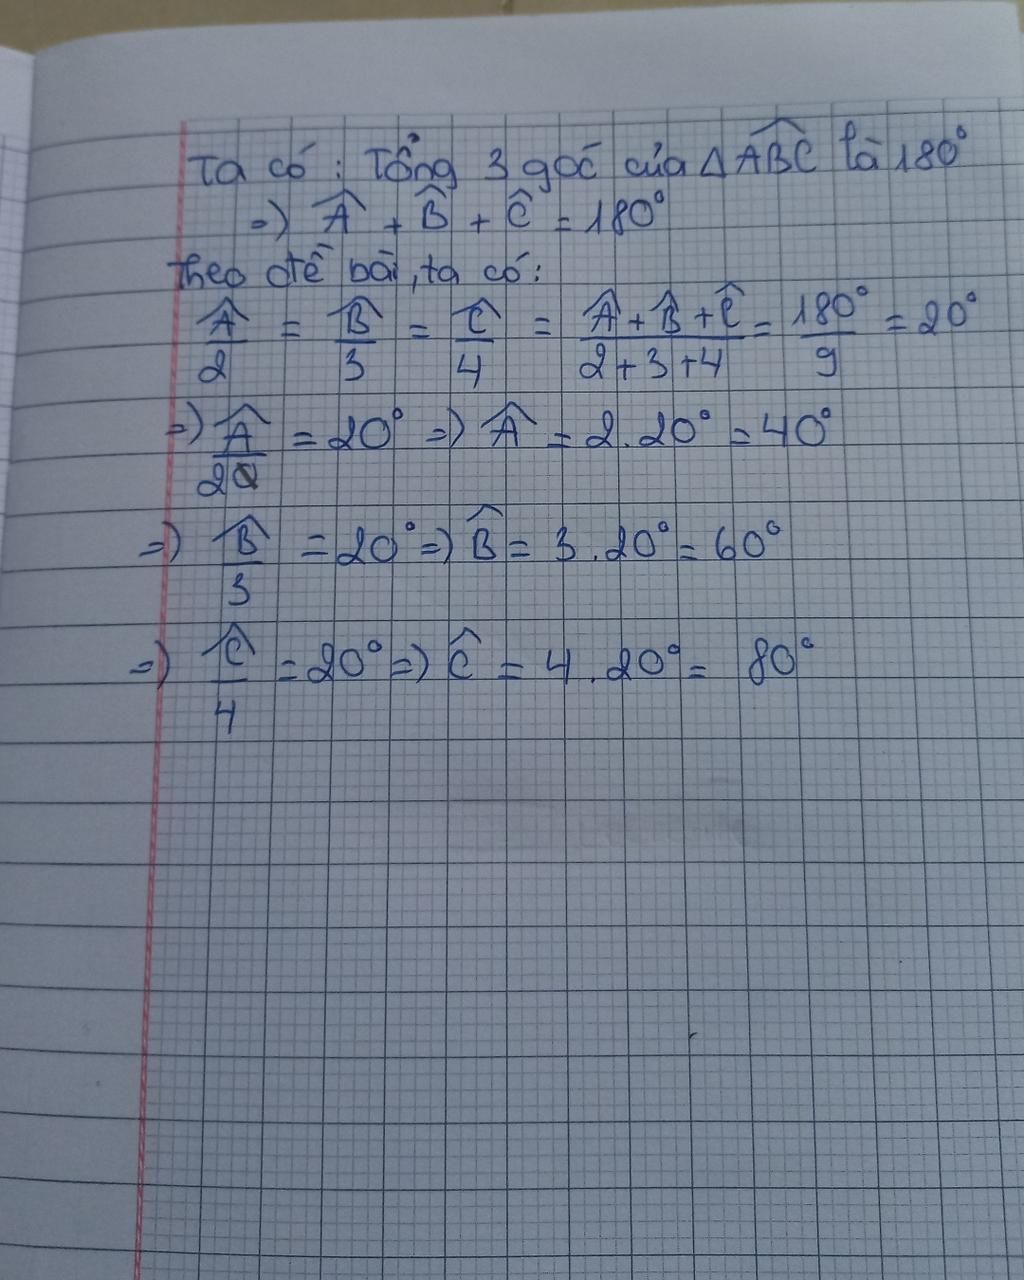 Ta có: Tổng 3 góc của ΔABC̑ là 180°
=) Â + B̂ + Ĉ = 180°
Theo đề bài, ta có:
Â/2 = B̂/3 = Ĉ/4 = (Â + B̂ + Ĉ)/(2+3+4) = 180°/9 = 20°
=) Â/2 = 20° =) Â = 2.20° = 40°
=) B̂/3 = 20° =) B̂ = 3.20° = 60°
=) Ĉ/4 = 20° =) Ĉ = 4.20° = 80°